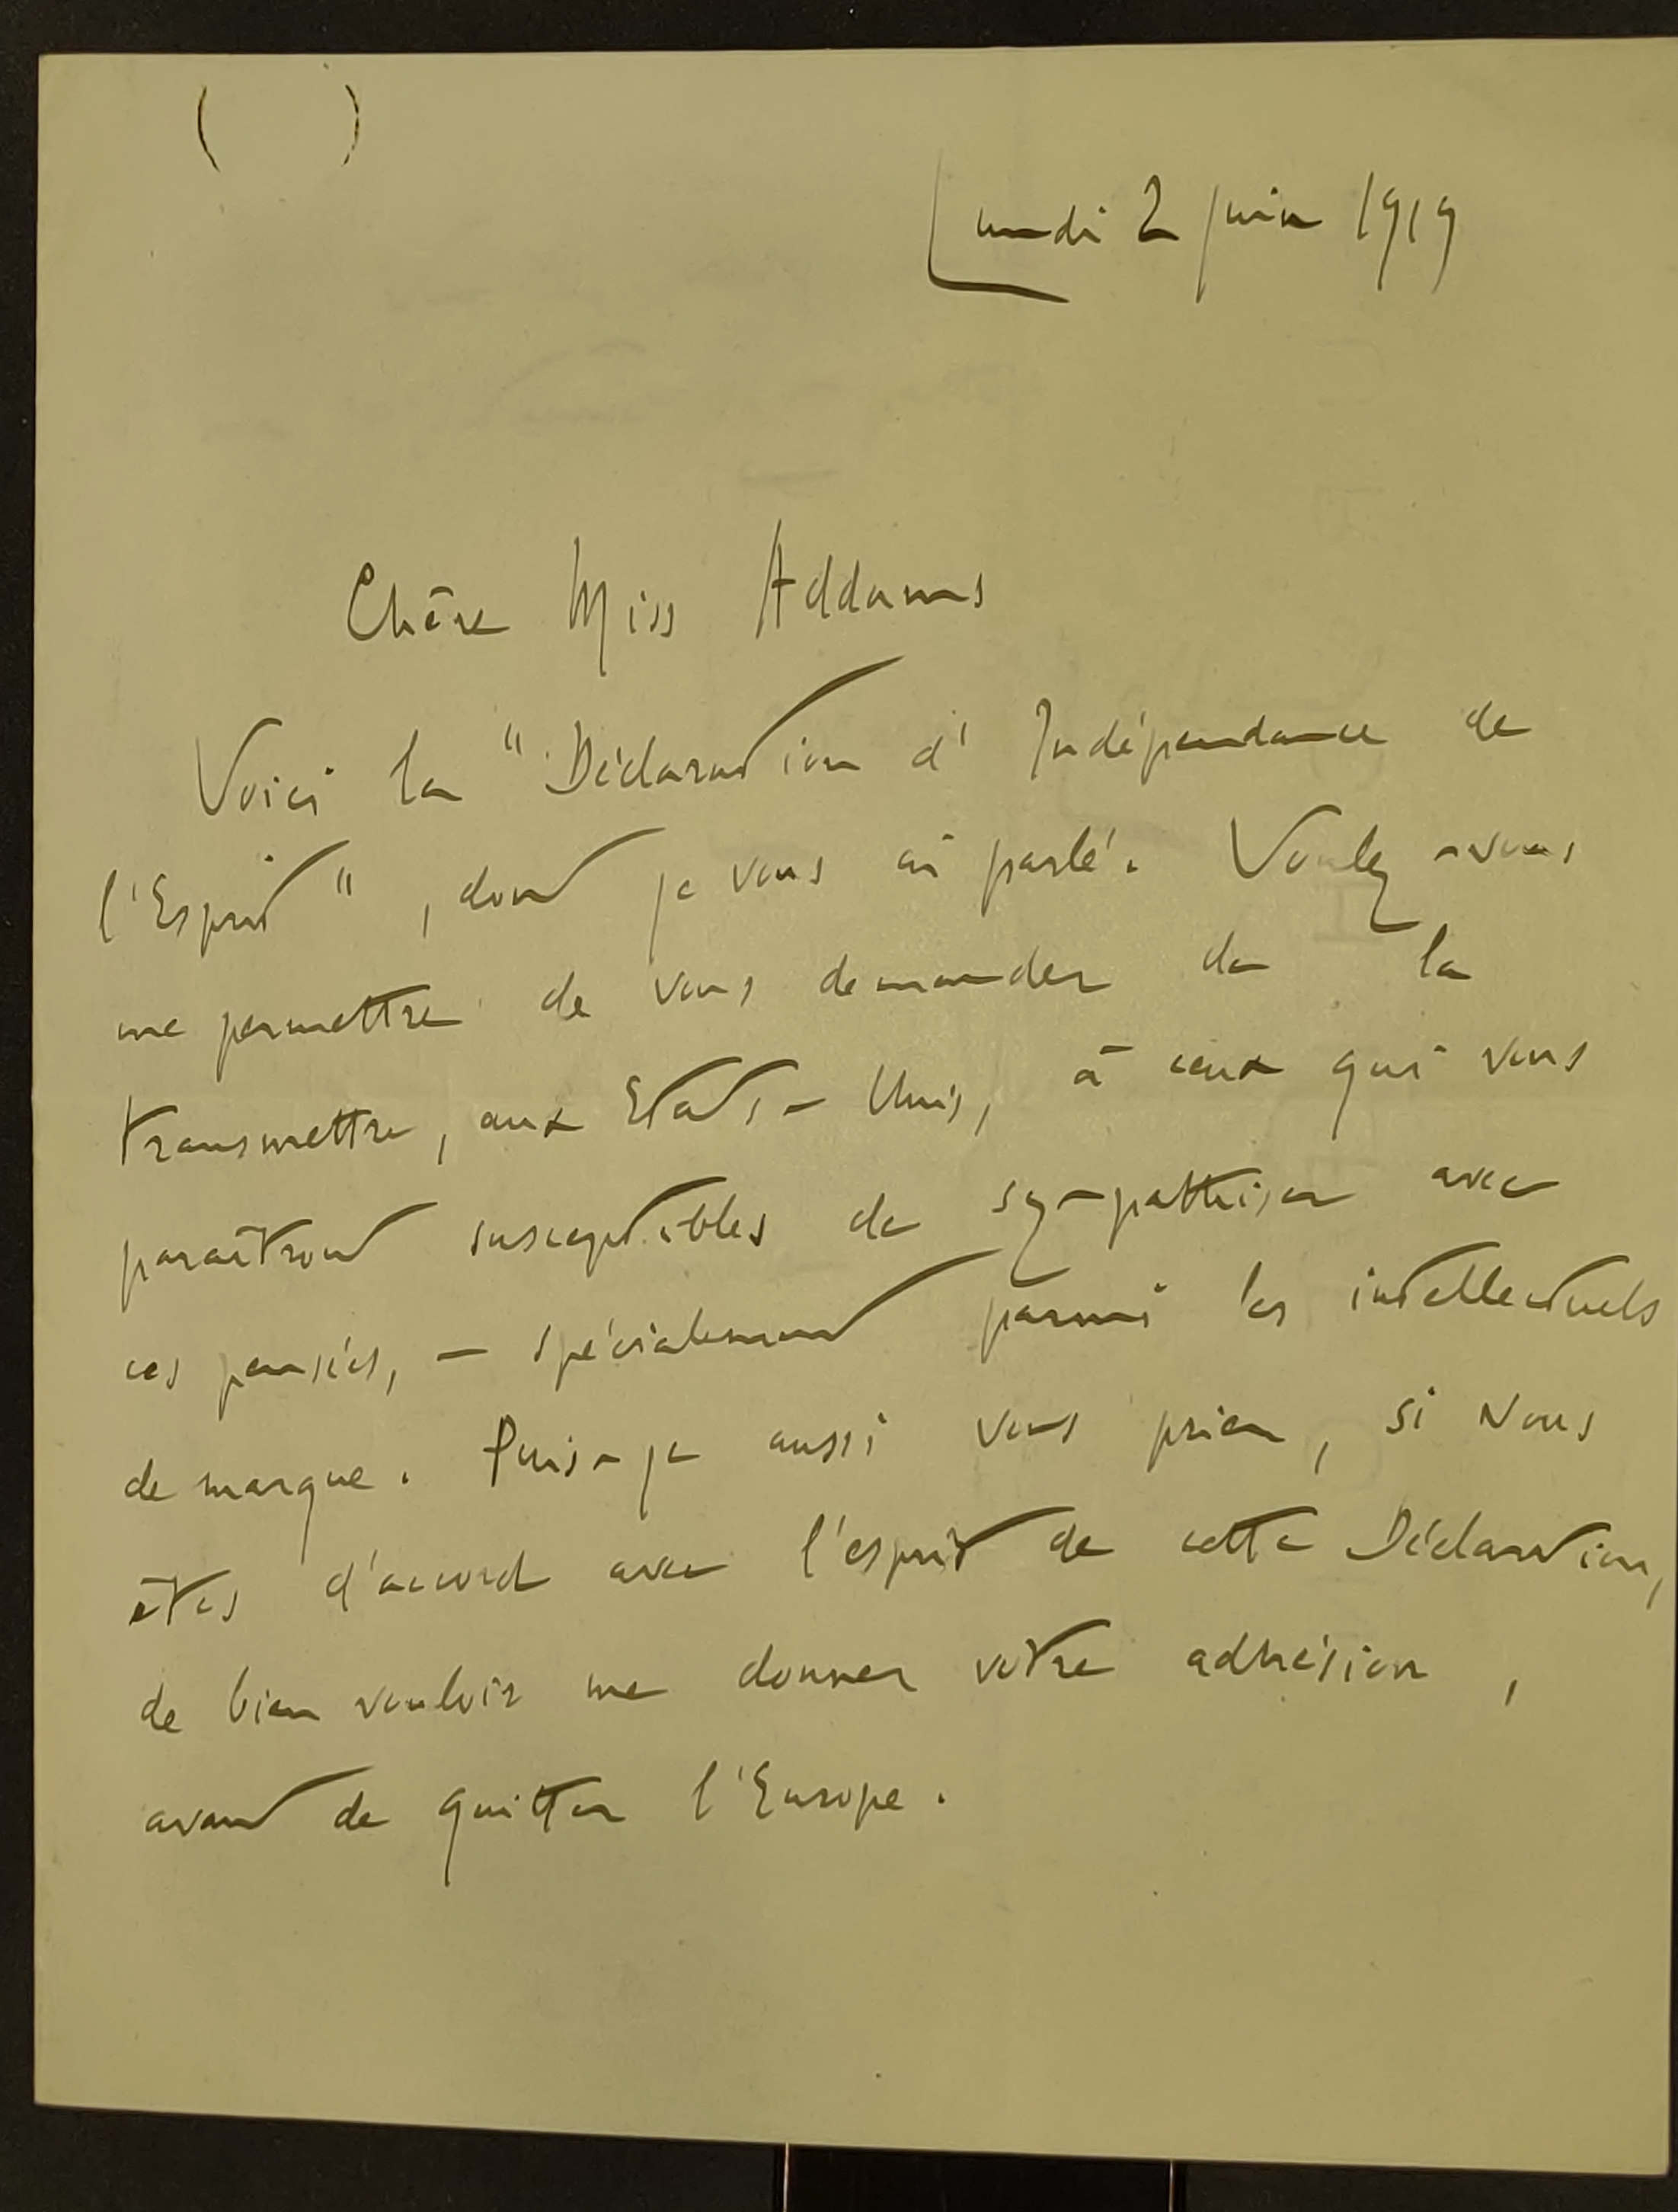 Lundi 2 juin 1919
Chère Miss Addams
Voici la "Déclaration d'Indépendance de
l'Esprit", dont je vous ai parlé. Voulez-vous
me permettre de vous demander de la
transmettre, aux Etats-Unis, à ceux qui vous
paraîtront susceptibles de sympathiser avec
ces pensées, — spécialement parmi les intellectuels
de marque. Puis-je aussi vous prier, si vous
êtes d'accord avec l'esprit de cette Déclaration,
de bien vouloir me donner votre adhésion,
avant de quitter l'Europe.